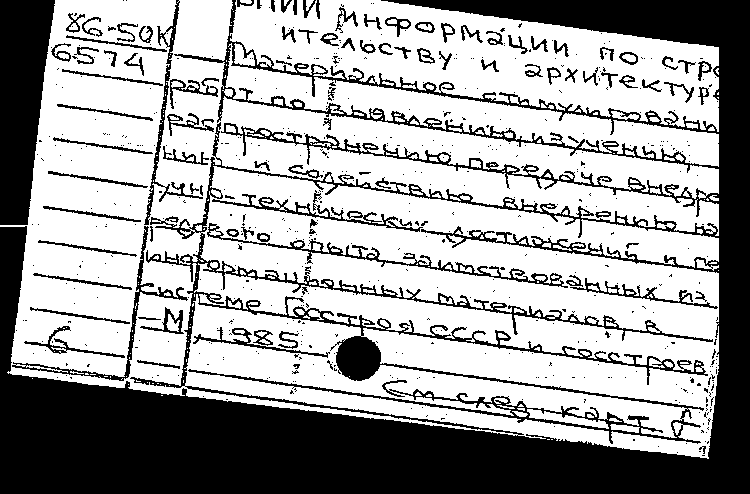 86-50К
6574
ВНИИ информации по стро
ительству и архитектуре
Материальное стимулировани
работ по выявлению, изучению,
распространению, передаче, внедре
нию и содействию внедрению на
учно-технических достижений и пе
редового опыта, заимствованных из
информационных материалов, в
системе Госстроя СССР и госстроев
М, 1985.
6
См след. карт.